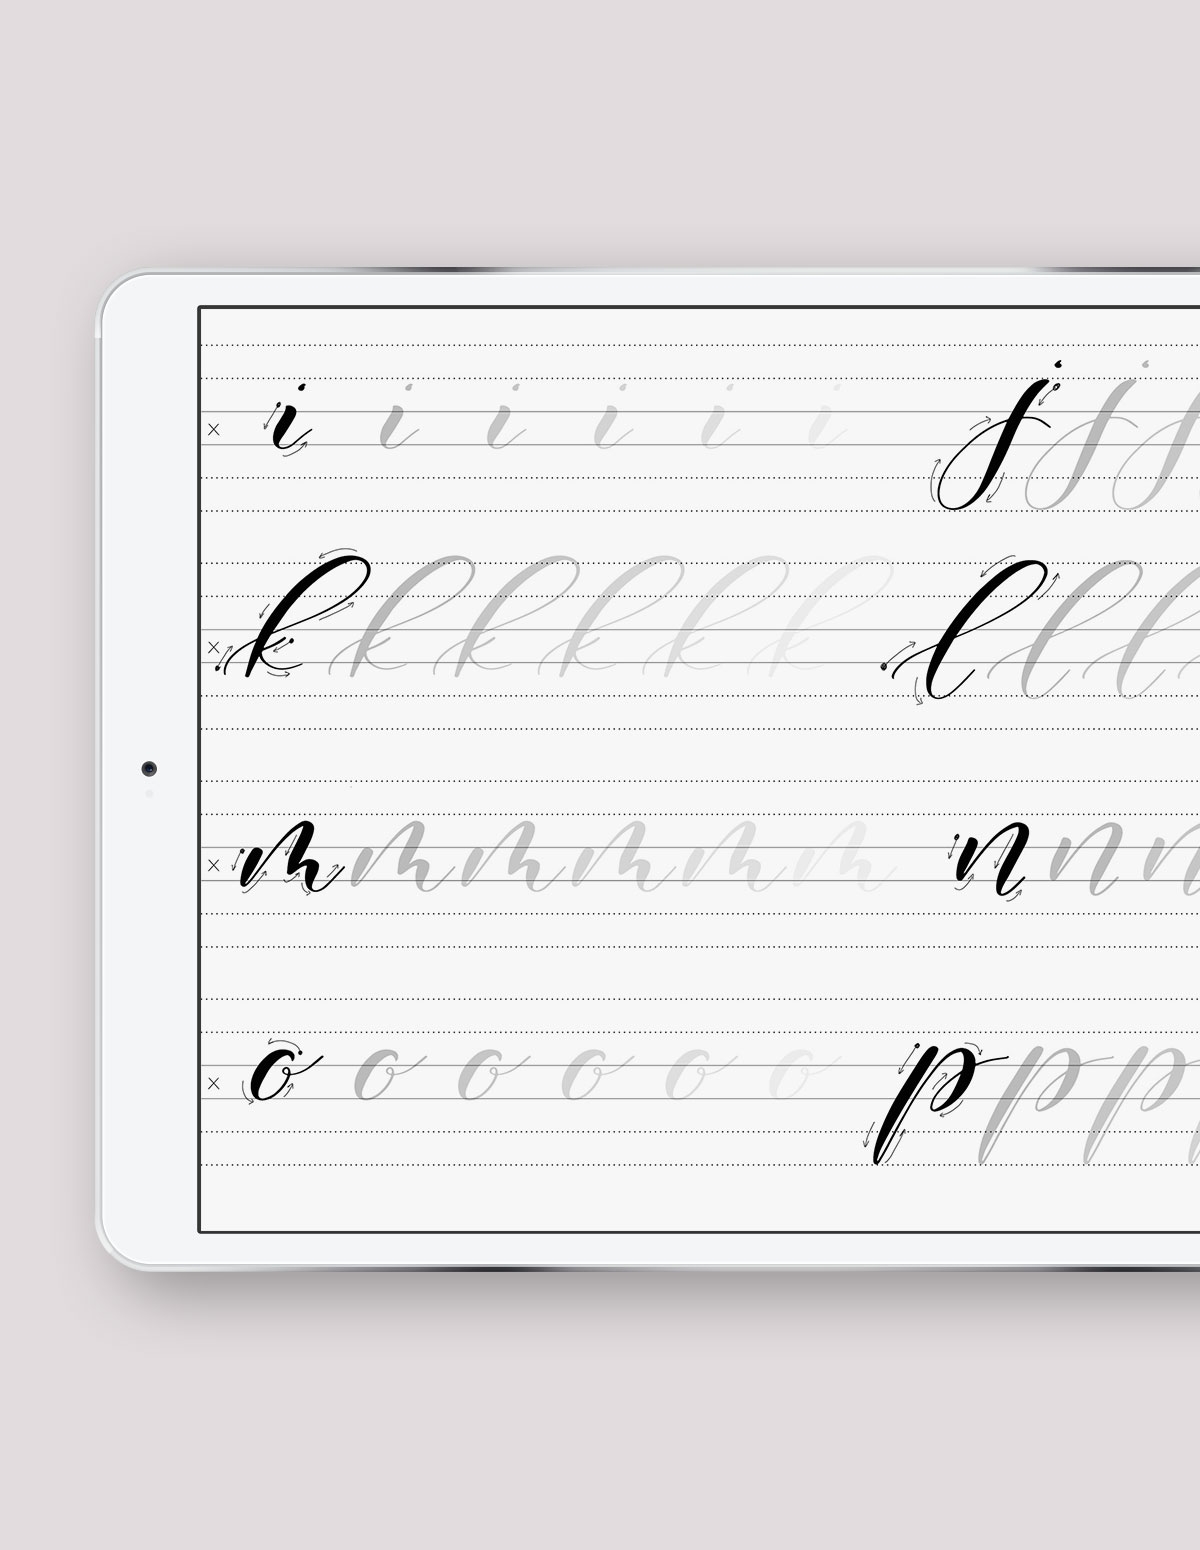 x i i i i i i j j j
x k k k k k k l l l
x m m m m m m n n n
x o o o o o o p p p